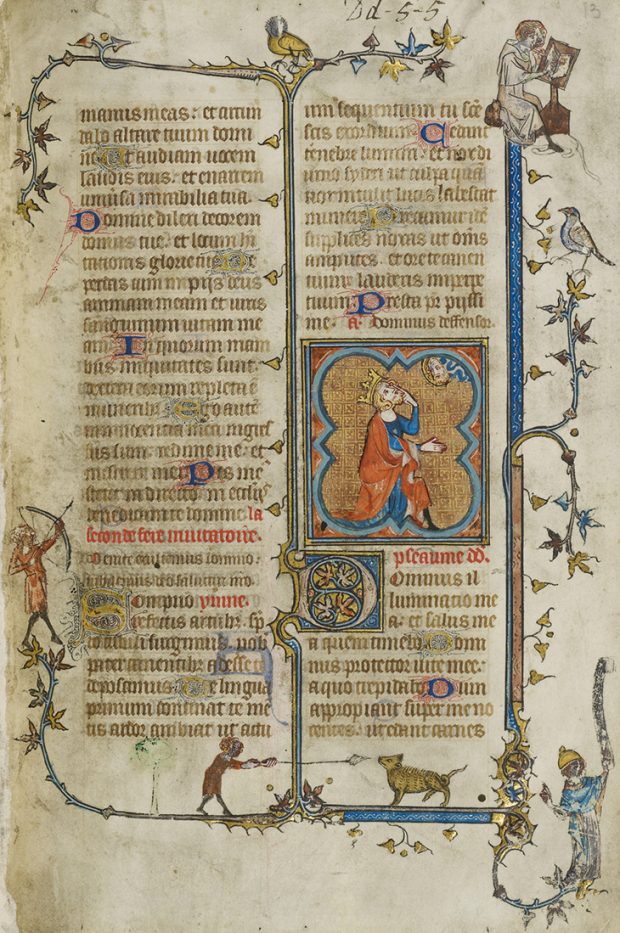 Dd-5-5
13
manus meas: et circum
dabo altare tuum domi
ne. Ut audiam uocem
laudis tue: et enarrem
uniuersa mirabilia tua.
Domine dilexi decorem
domus tue: et locum ha
bitacionis glorie tue. Ne
perdas cum impijs deus
animam meam: et cum uiris
sanguinum uitam me
am. In quorum mani
bus iniquitates sunt:
dextera eorum repleta est
muneribus. Ego autem
in innocentia mea ingres
sus sum: redime me: et
miserere mei. Pes me
stetit in directo: in ecclesijs
benedicam te domine. la
seconde fere inuitatoire.
Uenite exultemus domino.
iubilemus deo salutari nro.
Sompno ympne.
refectis artubus: spre
to cubili surgimus: nob
pater canentibus adesse te
deposcimus. Te lingua
primum concinat: te men
tis ardor ambiat: ut actu
um sequentium tu sce
sis exordium. Cedant
tenebre lumini: et nox di
urno syderi: ut culpa qua
nox intulit: lucis labescat
munere. Precamur ide
supplices noxas ut omnes
amputes: et ore te canen
tium: lauderis in perpe
tuum. Presta pr pijssi
me. a. Dominus deffensor.
pseaume dd.
Dominus il
luminacio me
a: et salus mea
a quem timebo. Domi
nus protector uite mee:
a quo trepidabo. Dum
appropiant super me no
centes: ut edant carnes